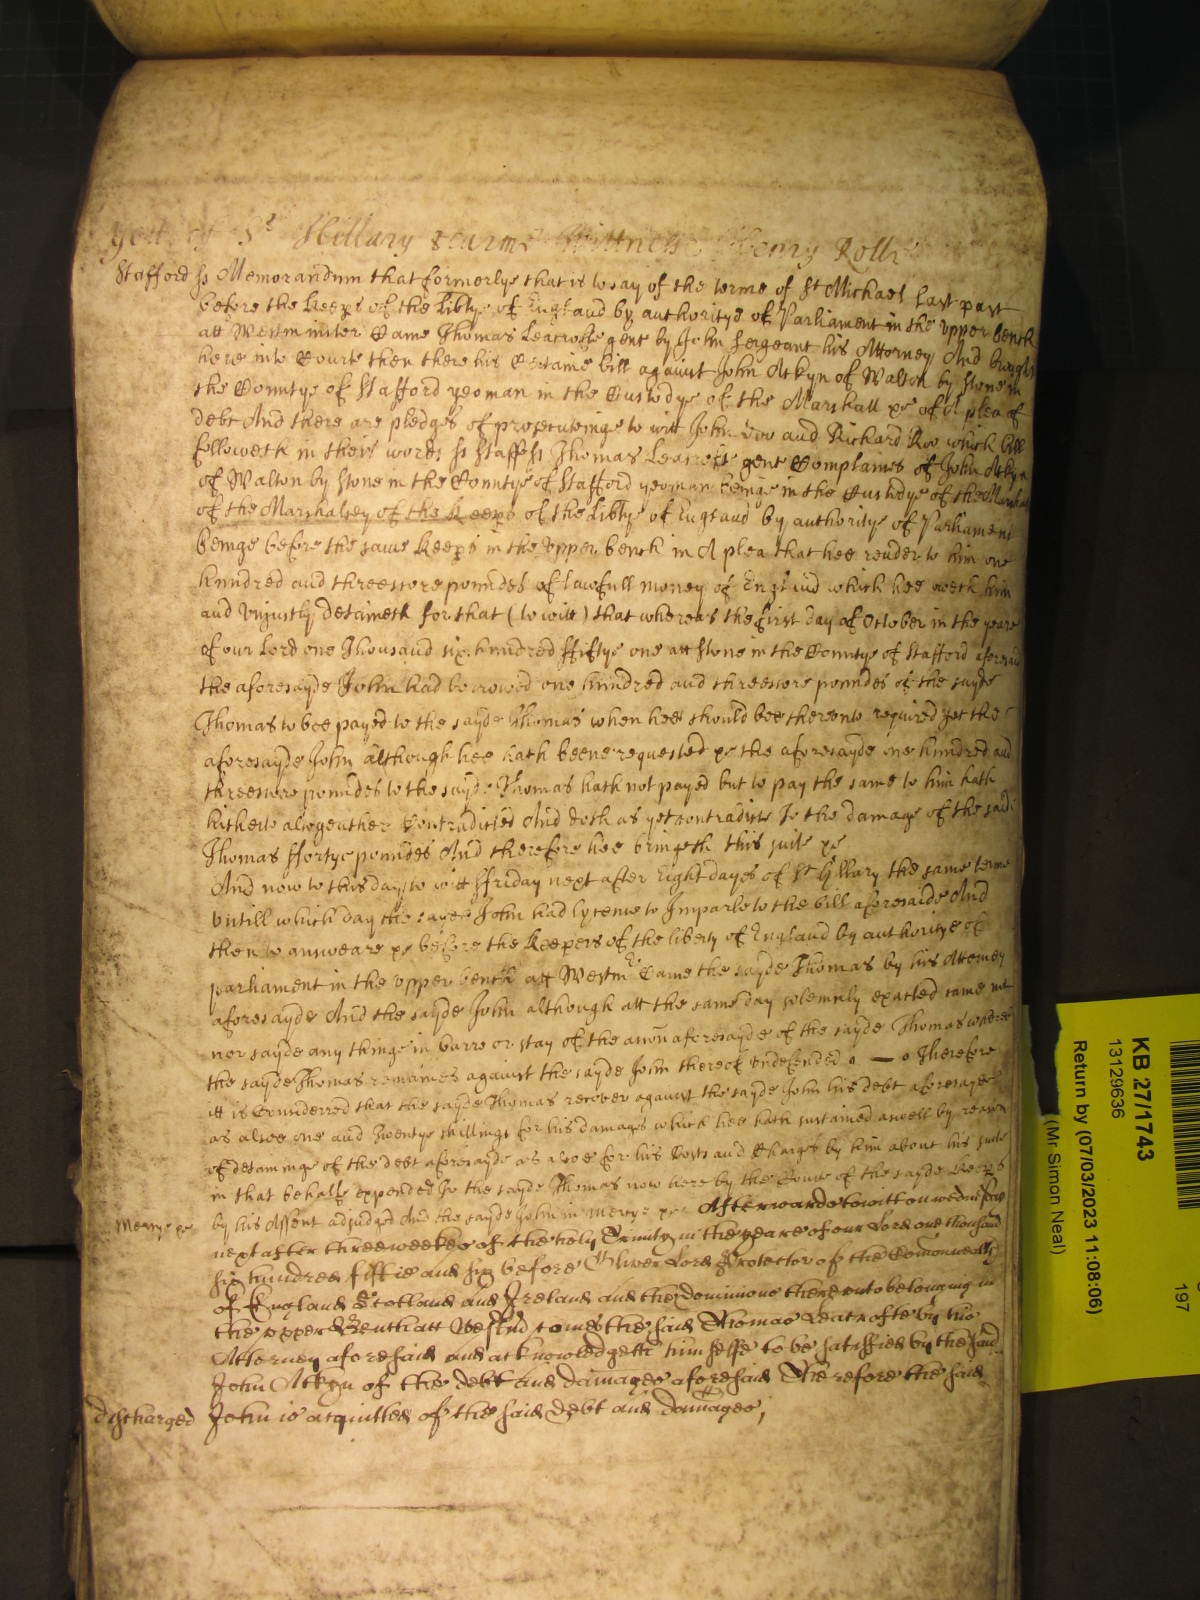 yett of St Hillary tearme Wittnesse Henry Rolle
Stafford ss Memorandum that formerlye that is to say of the terme of St Michael last past
before the keeps of the Libtye of England by authoritye of Parliament in the upper bench
att Westminster Came Thomas Leacrofte gent by John Sergeant his Attorney And brought
here into Courte then there his Certaine bill against John Atkyn of Walton by Stone in
the Countye of Stafford yeoman in the Custodye of the Marshall &c of A plea of
debt And there are pledges of prosecuteinge to witt John Doo and Richard Roo which bill
followeth in theis words ss Staff ss Thomas Leacrofte gent Complaines of John Atkyn
of Walton by Stone in the Countye of Stafford yeoman beinge in the Custodye of the Marshall
of the Marshalsey of the keeps of the Libtye of England by authoritye of Parliament
beinge before the same keeps in the upper bench in A plea that hee render to him one
hundred and threescore poundes of lawfull money of England which hee oweth him
and unjustly detaineth for that (to witt) that whereas the first day of October in the yeare
of our Lord one Thousand six hundred fiftye one att Stone in the Countye of Stafford aforesaid
the aforesayde John had borrowed one hundred and threescore poundes of the sayde
Thomas to bee payed to the sayde Thomas when hee should bee thereonto required yet the
aforesayde John although hee hath beene requested &c the aforesayde one hundred and
threescore poundes to the sayde Thomas hath not payed but to pay the same to him hath
hitherto altogeather Contradicted And doth as yet contradicte To the damage of the said
Thomas ffortye poundes And therefore hee bringeth this suite &c
And now to this day to witt ffriday next after Eight dayes of St Hillary the same terme
Untill which day the sayde John had lycence to Imparle to the bill aforesaide And
then to answeare &c before the Keepers of the liberty of England by authoritye of
parliament in the upper bench att Westmr Came the sayde Thomas by his Attorney
aforesayde And the sayde John although att the same day solemnly exacted came not
nor sayde any thinge in barre or stay of the accon aforesayde of the sayde Thomas whereby
the sayde Thomas remaines against the sayde John thereof undefended Therefore
itt is Considerred that the sayde Thomas recover against the sayde John his debt aforesayde
as alsoe one and Twentye shillings for his damages which hee hath sustained aswell by reason
of detaininge of the debt aforesayde as alsoe for his Costs and Charges by him about his suite
in that behalfe expended To the sayde Thomas now here by the Courte of the sayde keeps
Mercye &c by his Assent adjudged And the sayde John in mercye &c Afterwards to witt on wednesday
next after three weekes of the holy Trinity in the yeare of our Lord one thousand
six hundred fiftie and six before Oliver Lord Protector of the Comonwealth
of England Scotland and Ireland and the Dominions thereunto belonging in
the upper Bench att Westmr comes the said Thomas Leacrofte by his
Attorney aforesaid and acknowledgeth himselfe to be satisfied by the said
John Atkyn of the debt and damages aforesaid Therefore the said
discharged John is acquitted of the said debt and damages,
KB 27/1743
13129636
Return by (07/03/2023 11:08:06)
(Mr Simon Neal)
197